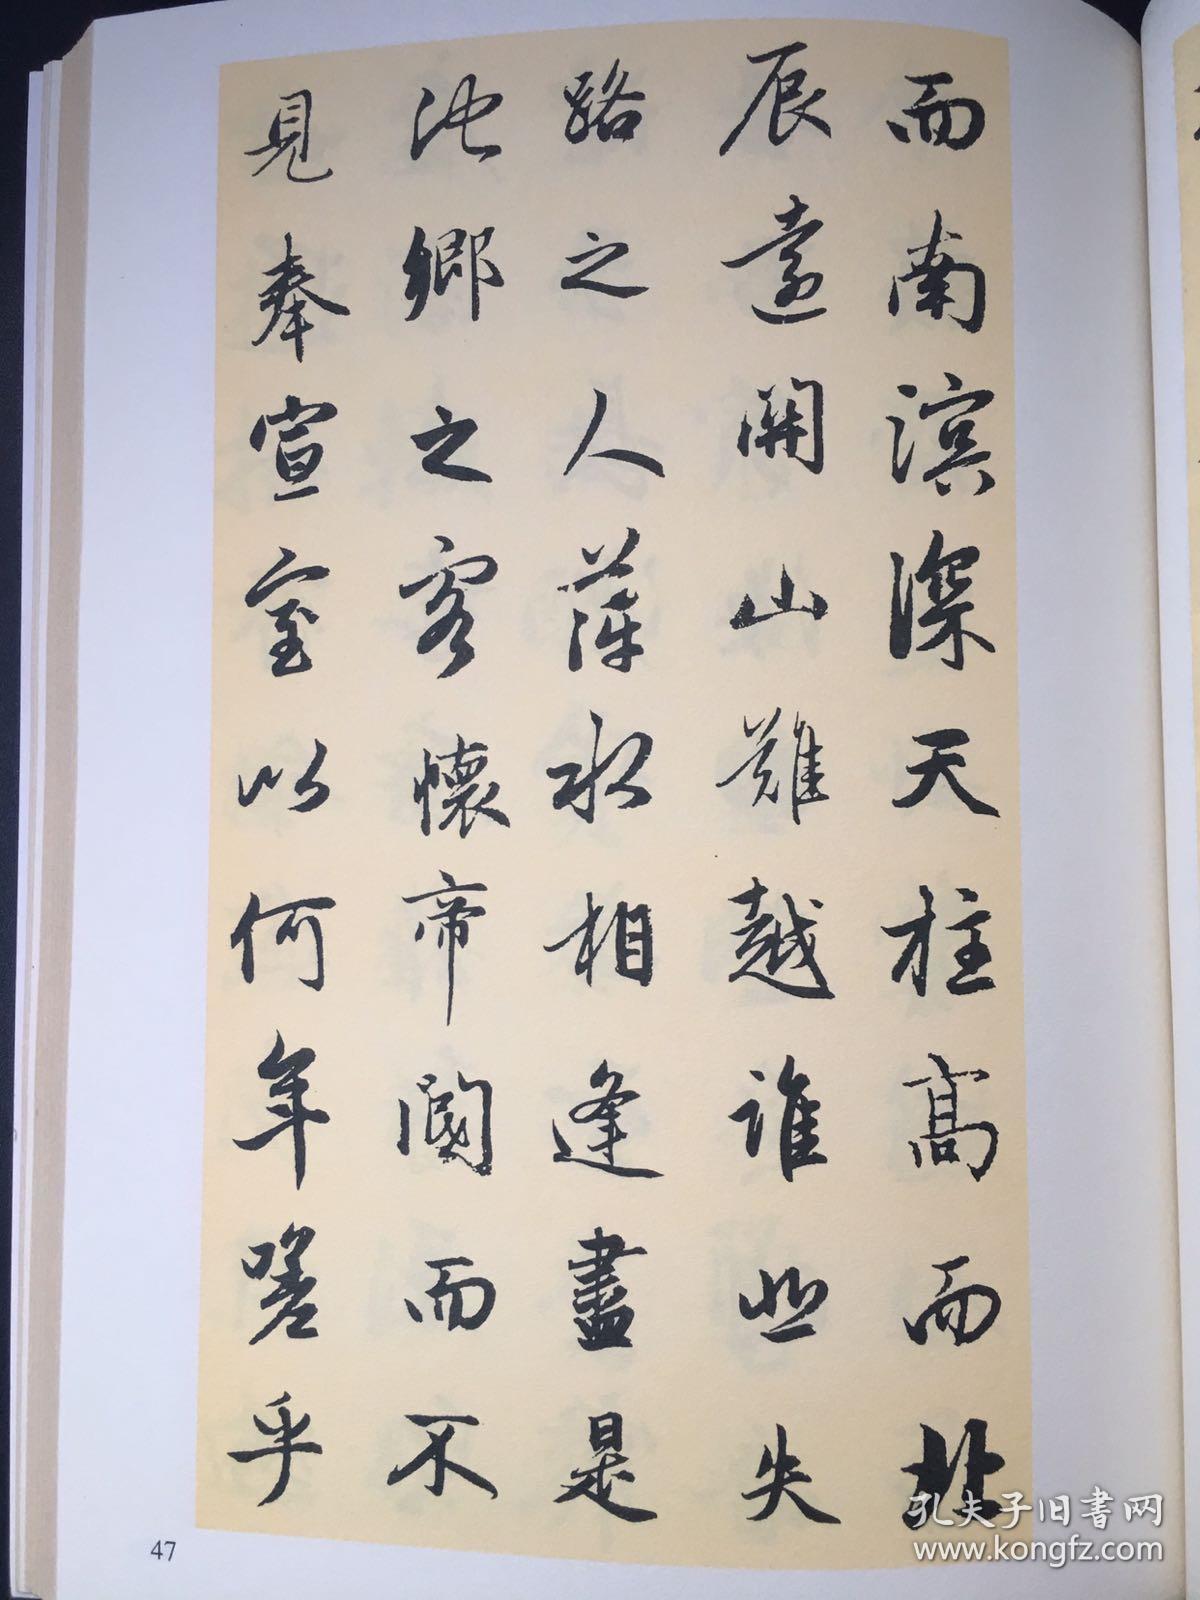 而南溟深天柱高而北
辰遠關山難越誰悲失
路之人萍水相逢盡是
他鄉之客懷帝閽而不
見奉宣室以何年嗟乎
47
孔夫子旧書网
www.kongfz.com